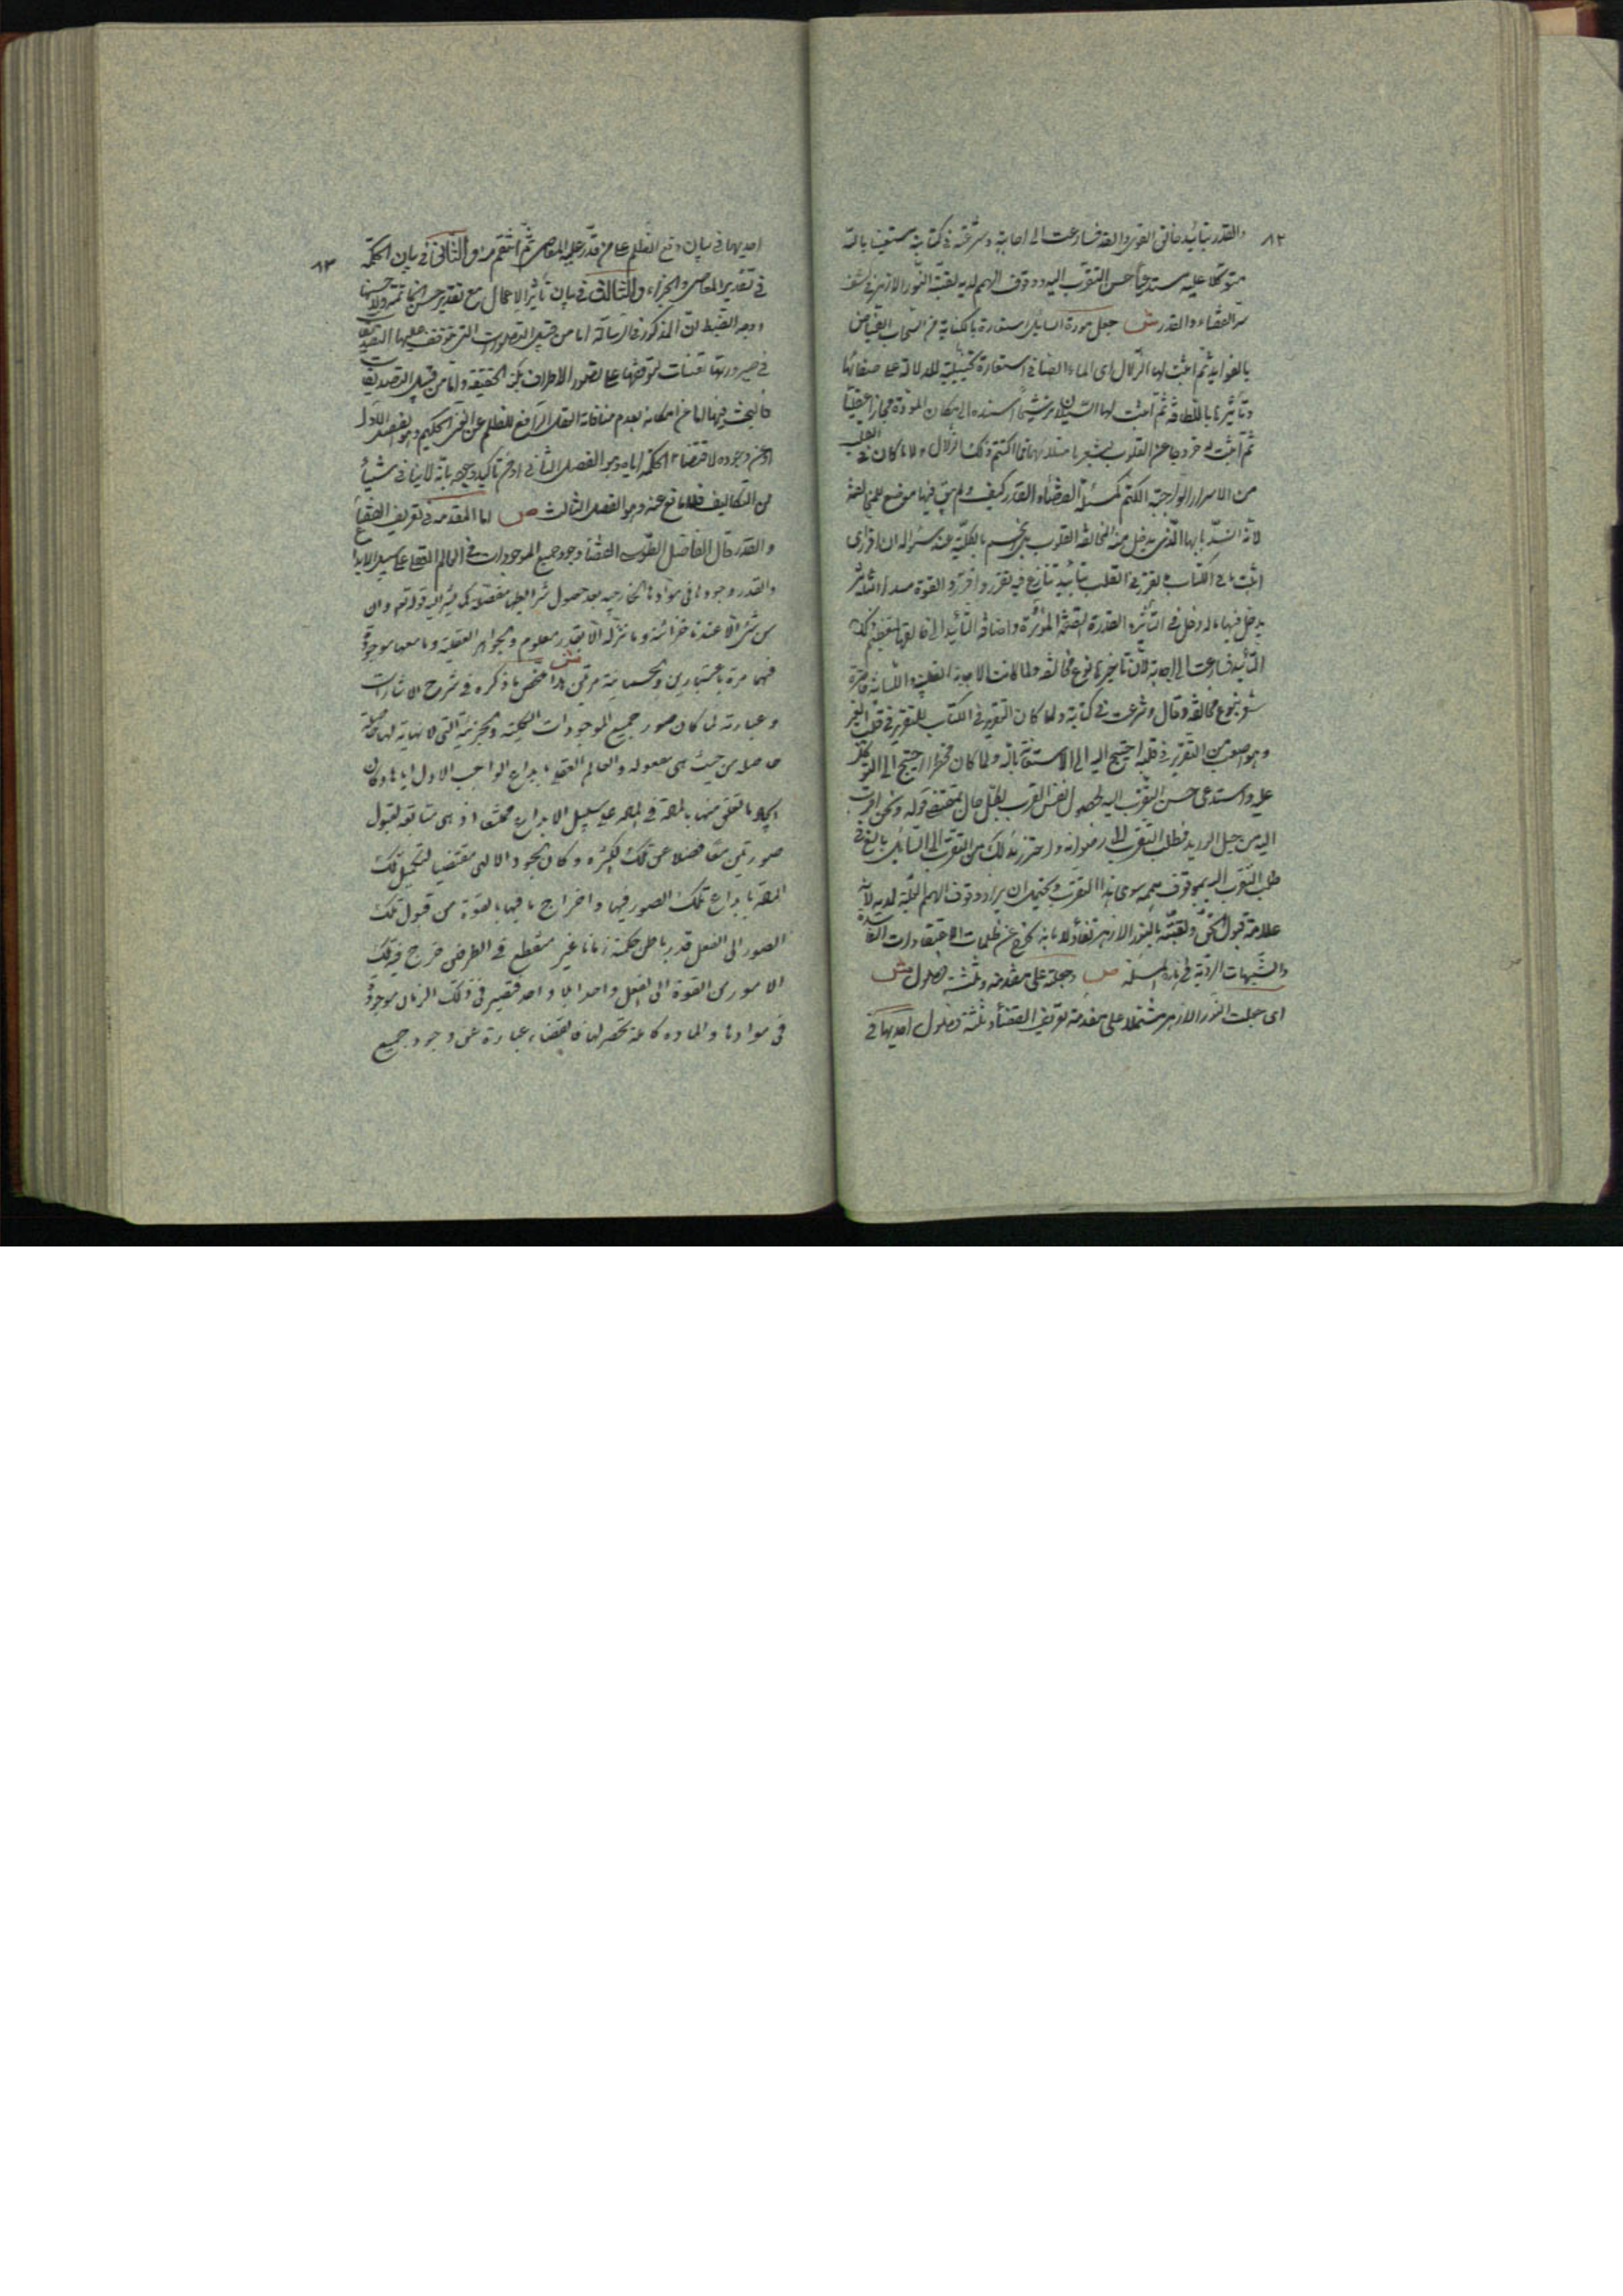 ٨٢
والقدر بتأييد خالق القوى والقدر فسارعت الى اجابته وشرعت فى كتابته مستعينا بالله
متوكلا عليه مستدعيا حسن التقرب اليه ووقوف الهمم لديه لقبته النور الازهر فى كشف
سر القضاء والقدر ش جعل مودة السائل استعارة بالكناية من السحاب الفياض
بالفوايد ثم اثبت لها الزلال اى الماء الصافى استعارة تخييلية للدلالة على صفائها
وتأثيرها باللطافة ثم اثبت لها السيلان ترشيحا اسنده الى مكان المودة مجازا عقليا
ثم اثبت خروجا عن القلوب ما اكتتم ذلك الزلال ولا ما كان فى القلب
من الاسرار الواجبة الكتم كمسئلة القضاء والقدر كيف ولم يبق فيها موضع للمخالفة
لانه انسد بابها الذى يدخل منه المخالفة القلوب بالكلية عند سؤاله ان اقرر اى
اثبت فى الكتاب ما تقرر فى القلب بتأييد تنازع فيه تقرر واقرر والقوة مبدأ التأثير
يدخل فيها ماله دخل فى التأثير والقدرة الصفة المؤثرة واضافة التأييد الى خالقها
التأييد فسارعت الى اجابته لان تأخيرها نوع مخالفة ولما كانت الاجابة القلبية واللسانية
بنوع مخالفة وقال وشرعت فى كتابته ولما كان التقرير فى الكتاب للتقرير فى قلب الغير
وهو اصعب من التقرير فى قلبه احتيج اليه الى الاستعانة بالله ولما كان احتيج الى التوكل
عليه واستدعى حسن التقرب اليه لحصول نفس القرب لكل حال بمقتضى قوله ونحن اقرب
اليه من حبل الوريد فطلب التقرب الى رضوانه واحترز بذلك من التقرب الى السائل بالغ فى
طلب التقرب اليه بوقوف همه سوى هذا التقرب ويحتمل ان يراد وقوف الهمم لديه لانه
علامة قبول الحق ولقبته بالنور الازهر تفاؤلا بانه يخرج عن ظلمات الاعتقادات الفاسدة
والشبهات الردية فى هذه المسئلة ص وجعلته على مقدمة وثلثة فصول ش
اى جعلت النور الازهر مشتملا على مقدمة تعريف القضاء وثلثة فصول احديها فى
٨٣
احديها فى بيان دفع الظلم عمن قدر عليه المعاصى ثم انتقم منه والثانى فى بيان الحكمة
فى تقدير المعاصى والجزاء والثالث فى بيان تأثير الاعمال مع تقدير حسن الخاتمة ولا حسنها
ووجه الضبط ان المذكور فى الرسالة اما من قبيل التصورات التى توقف عليها التصديقات
فى صيرورتها يقينيات لتوقفها على تصور الاطراف بكنه الحقيقة واما من قبيل التصديقات
فالبحث فيها اما عن امكانه بعدم منافاته العقل الرافع للظلم عن الحكيم وهو الفصل الاول
او عن وجوده لاقتضاء الحكمة اياه وهو الفصل الثانى او عن تأكيد وجوده بانه لا ينافى شيئا
من التكاليف فلا مانع عنه وهو الفصل الثالث ص اما المقدمة فى تعريف القضاء
والقدر قال الفاضل الطوسى القضاء وجود جميع الموجودات فى العالم العقلى على سبيل الابداع
والقدر وجودها فى موادها الخارجية بعد حصول شرايطها مفصلة كما يشير اليه قوله تعم وان
من شئ الا عندنا خزائنه وما ننزله الا بقدر معلوم والجواهر العقلية وما معها موجودة
فيهما مرة باعتبارين والجسمانية مرتين ش هذا ملخص ما ذكره فى شرح الاشارات
وعبارته لما كان صور جميع الموجودات الكلية والجزئية التى لا نهاية لها حاصلة
حاصله من حيث هى معقوله فى العالم العقلى بابداع الواجب الاول اياها وكان
ايجاد ما تعلق منها بالمادة فى المادة على سبيل الابداع ممتنعا اذ هى متأبية لقبول
صورتين معا فضلا عن تلك الكثرة وكان الجود الالهى مقتضيا لتكميل تلك
المادة بابداع تلك الصور فيها واخراج ما فيها بالقوة من قبول تلك
الصور الى الفعل قدر بلطف حكمته زمانا غير منقطع فى الطرفين خرج فيه تلك
الامور من القوة الى الفعل واحدا بعد واحد فتصير فى ذلك الزمان موجودة
فى موادها والمادة كاملة بها فالقضاء عبارة عن وجود جميع